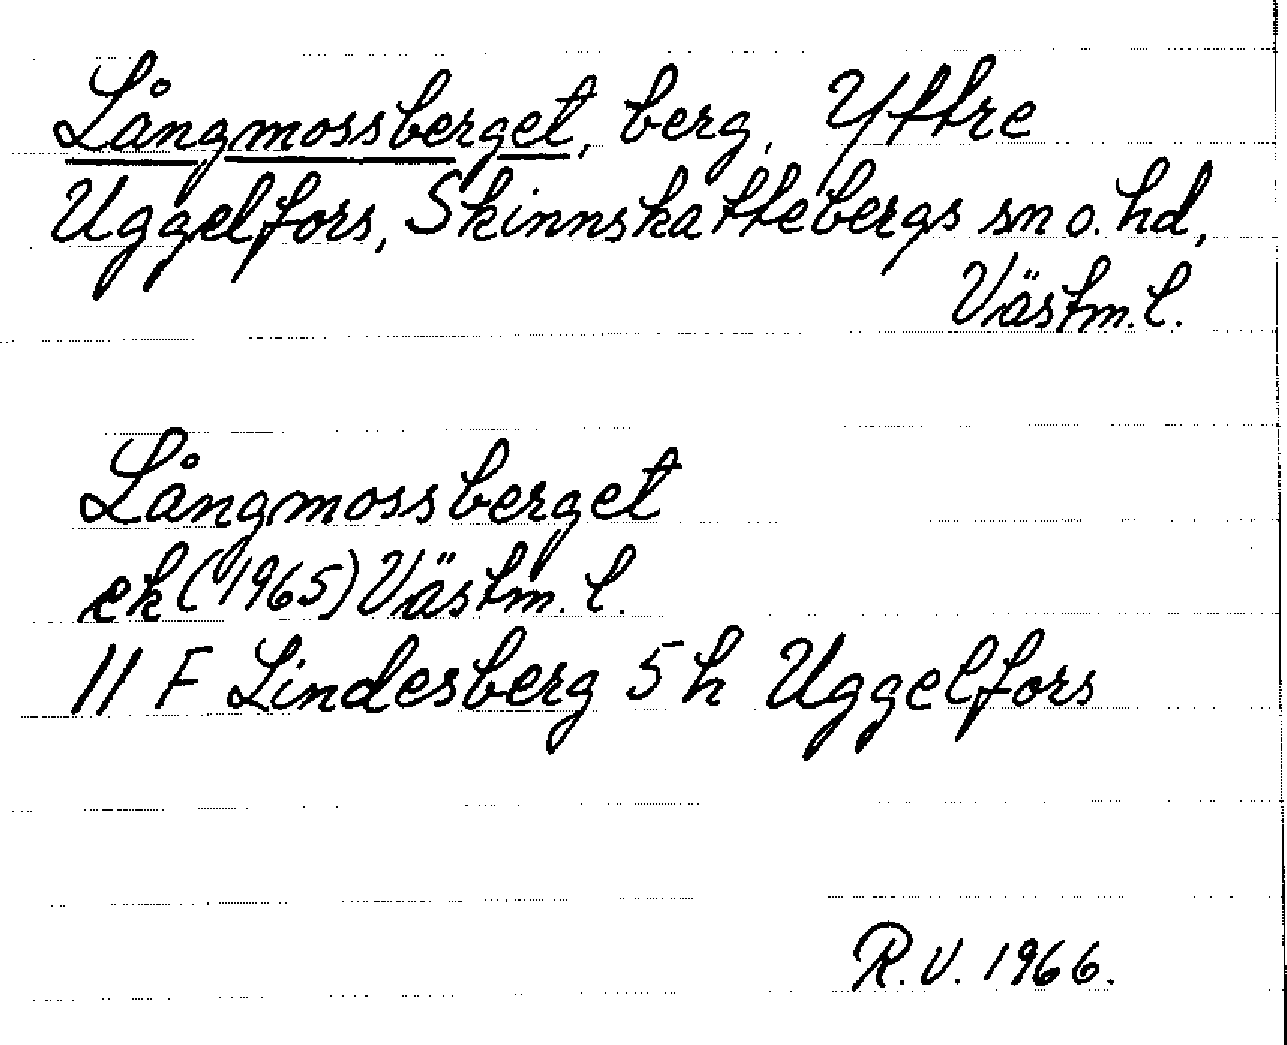 Långmossberget, berg, Yttre
Uggelfors, Skinnskattebergs sn o. hd,
Västm. l.
Långmossberget
ek (1965) Västm. l.
11 F Lindesberg 5 h Uggelfors
R.V. 1966.